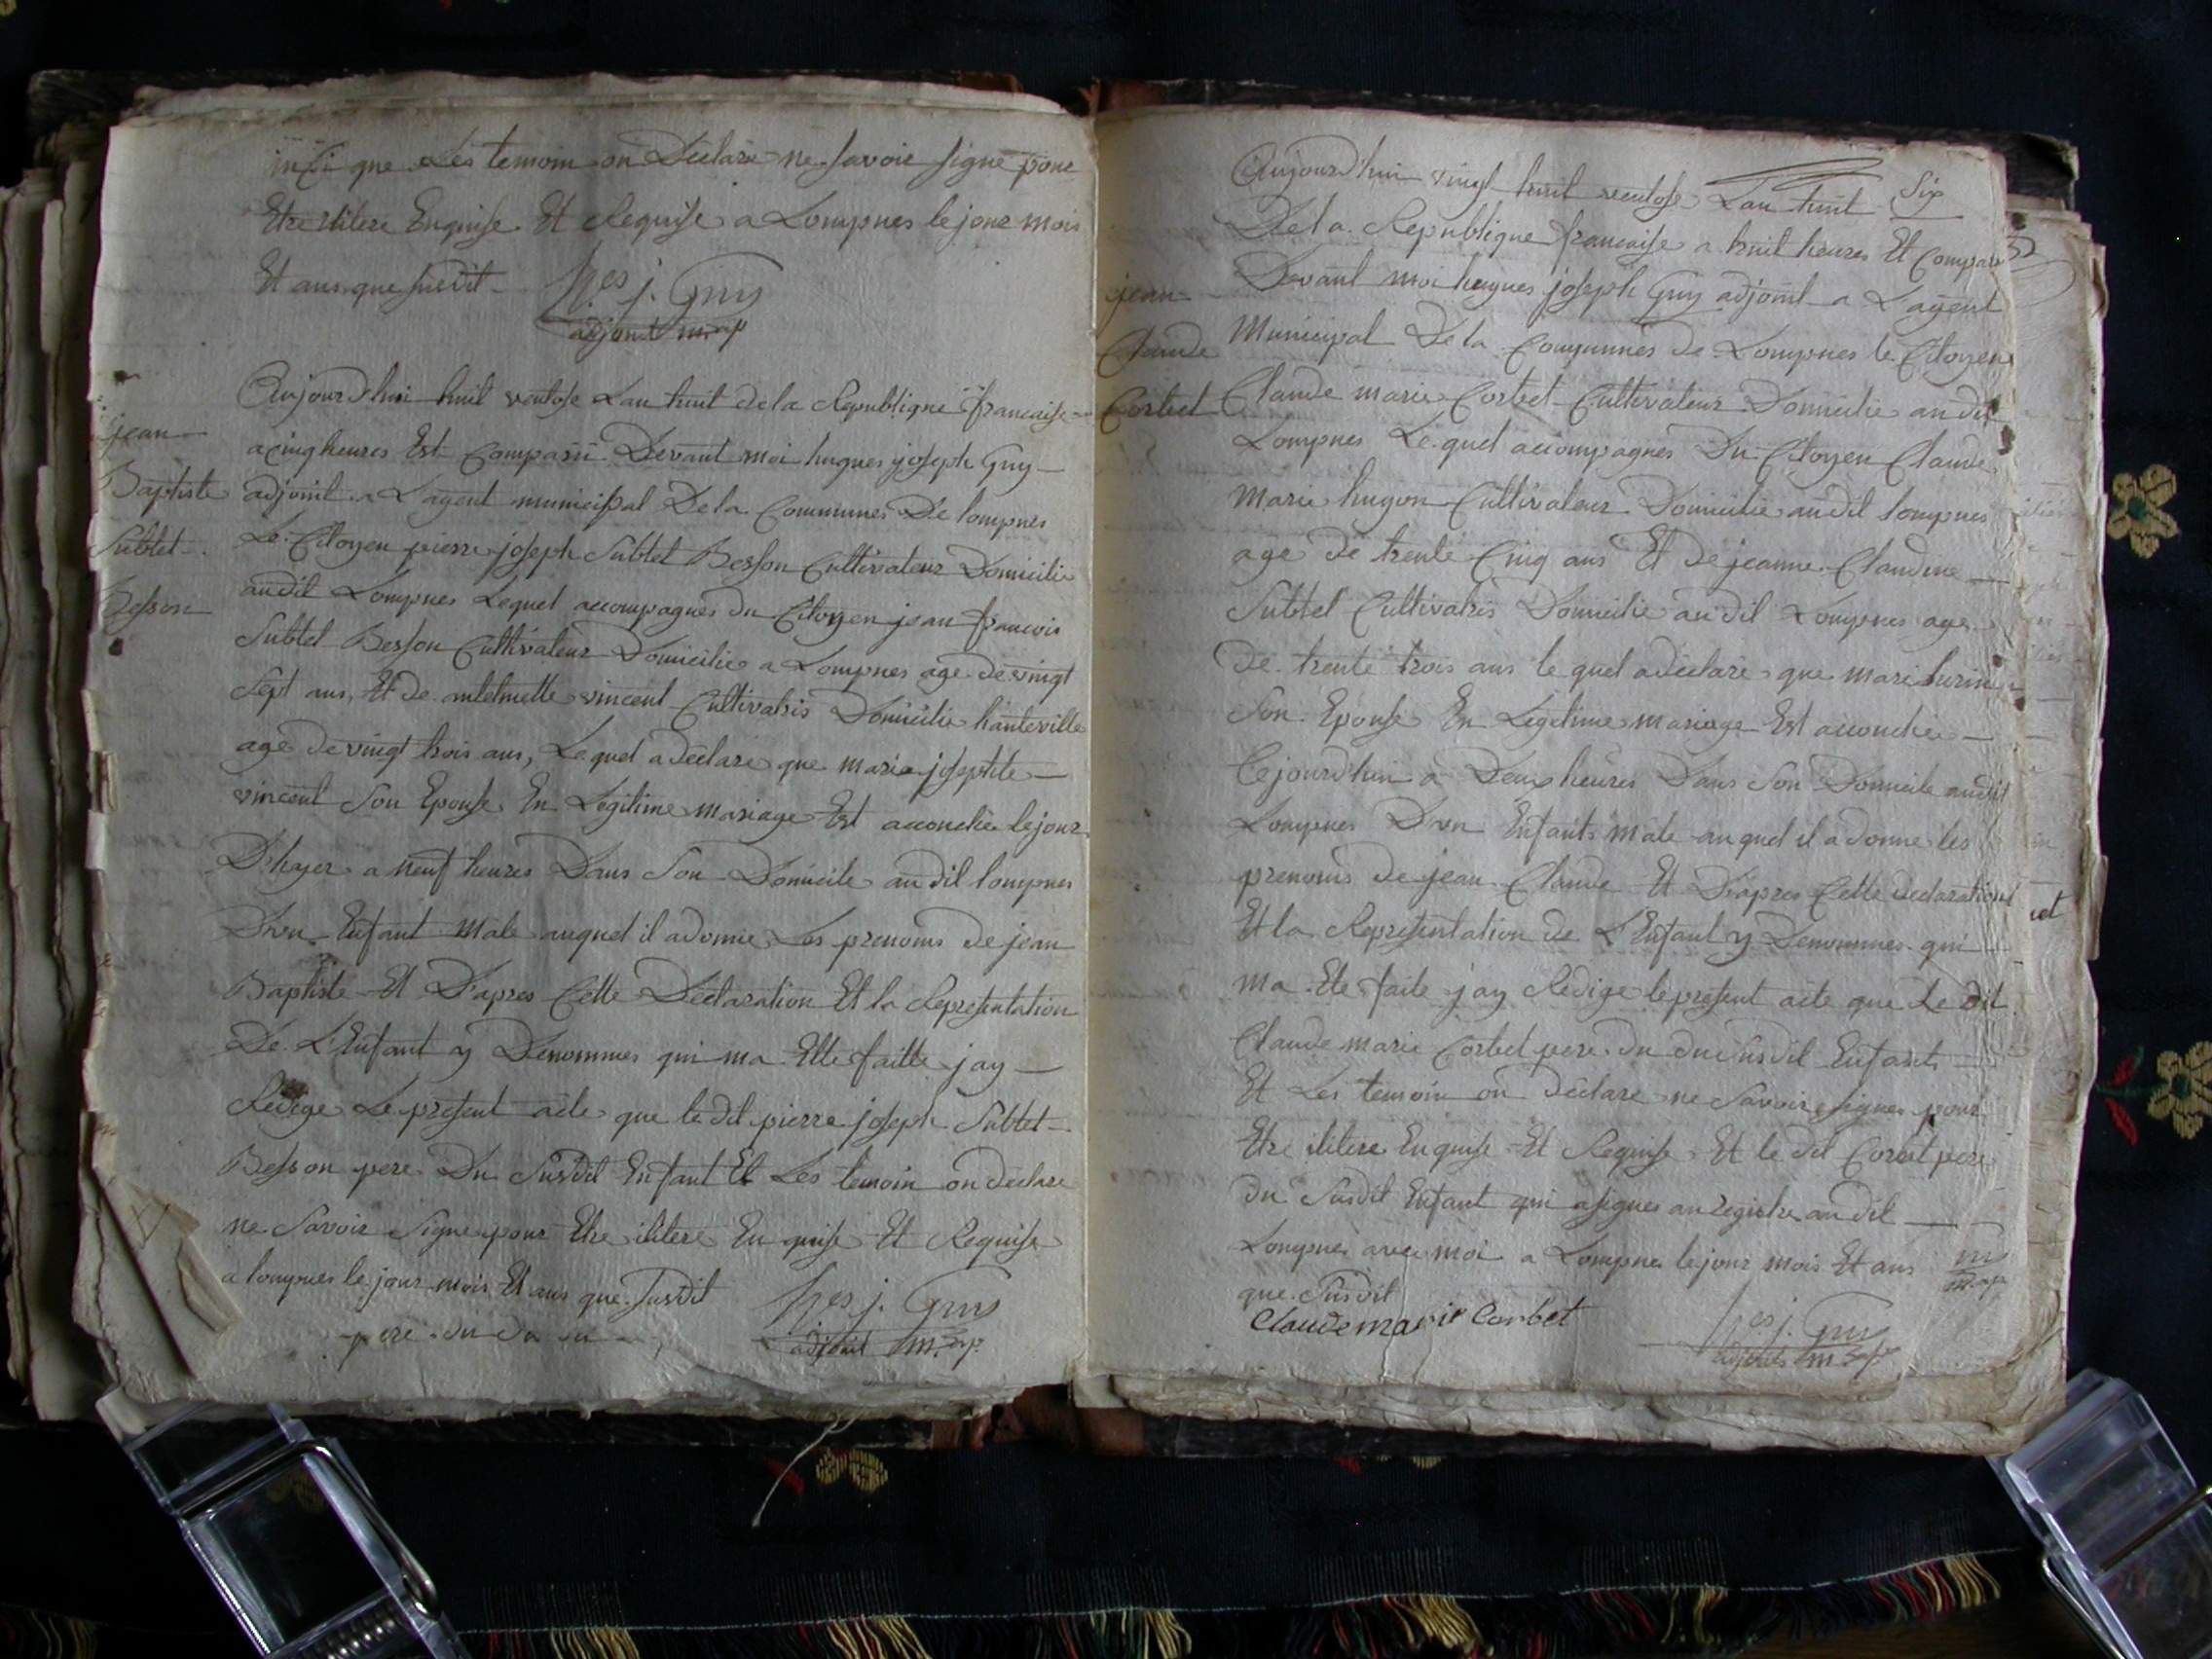 insi que Les temoin on Déclaré ne Savoir signé pour
Etre ilitere Enquise Et Requise a Lompnes le jour mois
Et ans que susdit
hes j. Guy
adjoint
jean
Baptiste
Subtet
Besson
Aujourdhui huit ventose Lan huit de la Republique francaise
a cinq heures Est Comparu Devant moi hugues joseph Guy
adjoint a L'agent municipal De la Communes De lompnes
Le Citoyen pierre joseph Subtet Besson Cultivateur Domicilie
audit Lompnes Lequel accompagnés du Citoyen jean francois
Subtet Besson Cultivateur Domicilie a Lompnes age de vingt
Sept ans, Et de vincent Cultivatris Domicilie hauteville
age de vingt trois ans, Le quel a déclaré que marie josephte
vincent Son Epouse En Légitime mariage Est accouchée le jour
D'hayer a neuf heures Dans Son Domicile audit lompnes
D'un Enfant Male auquel il a donné Les prenoms de jean
Baptiste Et D'apres Cette Déclaration Et la Representation
De L'Enfant y Denommés qui ma Ette faitte jay
Redige Le present acte que le dit pierre joseph Subtet
Besson pere Du Susdit Enfant Et Les temoin on déclaré
ne Savoir Signe pour Etre ilitere Enquise Et Requise
a lompnes le jour mois Et ans que Susdit
hes j. Guy
pere du
adjoint
jean
Claude
Corbet
Aujourd'hui vingt huit ventose Lan huit Six
De la Republique francaise a huit heures Et Comparu
Devant moi hugues joseph Guy adjoint a L'agent
Municipal De la Communes de Lompnes le Citoyen
Claude marie Corbet Cultivateur Domicilie au dit
Lompnes Le quel accompagnes Du Citoyen Claude
Marie hugon Cultivateur Domicilie audit lompnes
age de trente Cinq ans Et de jeanne Claudine
Subtet Cultivatris Domicilie au dit Lompnes age
De trente trois ans le quel a déclaré que marie
Son Epouse En Légitime mariage Est accouchée
Cejourd'hui a Deux heures Dans Son Domicile audit
Lompnes D'un Enfants mâle auquel il a donne les
prenoms de jean Claude Et D'apres Cette declaration
Et la Representation de L'Enfant y Denommes qui
ma Ete faite jay Redige le present acte que Le dit
Claude marie Corbet pere du du susdit Enfants
Et Les temoin on déclaré ne Savoir signes pour
Etre ilitere Enquise Et Requise Et le dit Corbet pere
du Susdit Enfant qui a signes au registre au dit
Lompnes avec moi a Lompnes le jour mois Et ans
que Susdit
Claude marie Corbet
hes j. Guy
adjoint